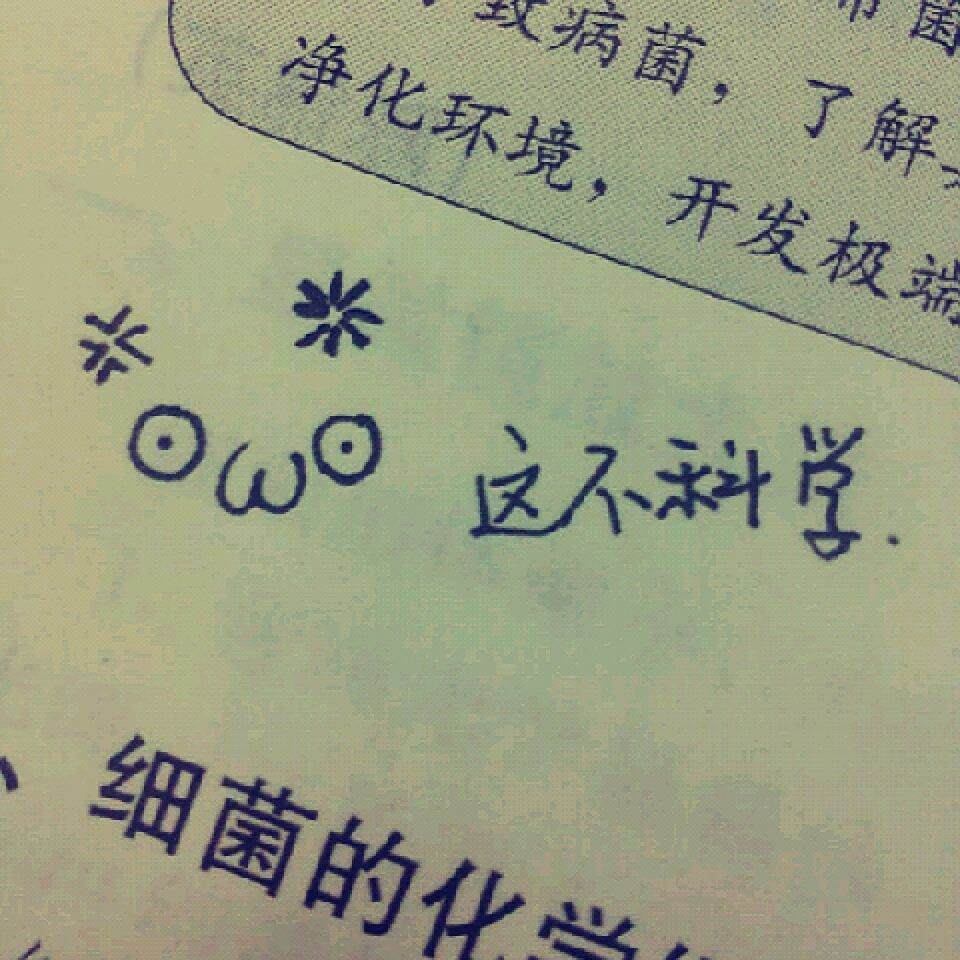 致病菌，了解
净化环境，开发极端
⊙ω⊙ 这不科学.
、细菌的化学